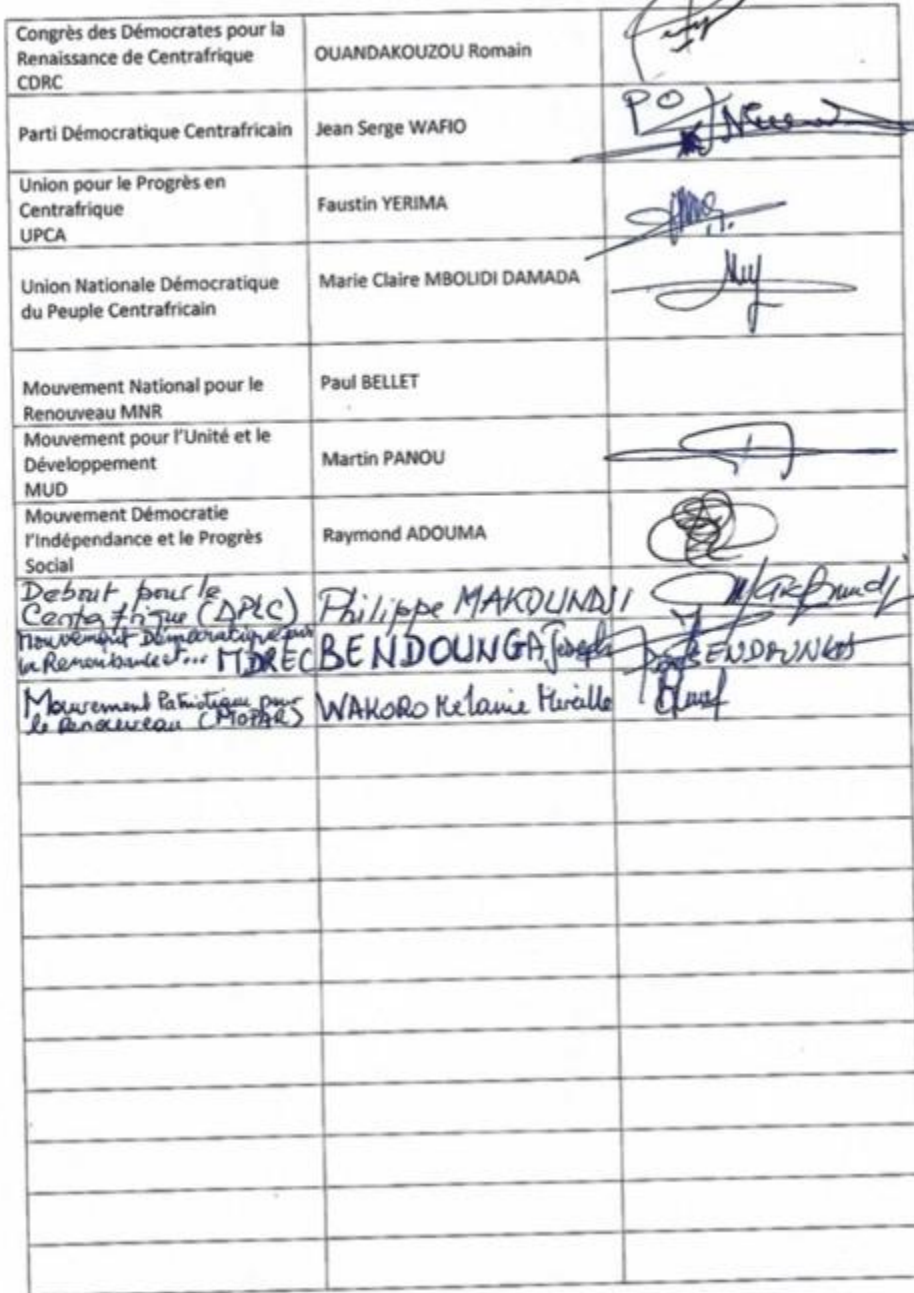 Congrès des Démocrates pour la
Renaissance de Centrafrique
CDRC
OUANDAKOUZOU Romain
Parti Démocratique Centrafricain
Jean Serge WAFIO
PO
Union pour le Progrès en
Centrafrique
UPCA
Faustin YERIMA
Union Nationale Démocratique
du Peuple Centrafricain
Marie Claire MBOLIDI DAMADA
Mouvement National pour le
Renouveau MNR
Paul BELLET
Mouvement pour l'Unité et le
Développement
MUD
Martin PANOU
Mouvement Démocratie
l'Indépendance et le Progrès
Social
Raymond ADOUMA
Debout pour le
Centrafrique (DPLC)
Philippe MAKOUNDJI
Mouvement Démocratique pour
la et... MDREC
BENDOUNGA Joseph
BENDOUNGA
Mouvement Patriotique pour
le Renouveau (MOPAR)
WAKORO Mélanie Mireille